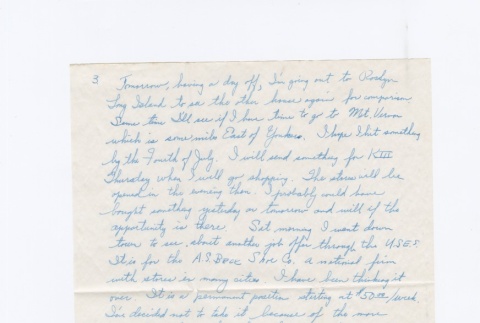 3 Tomorrow, having a day off, I'm going out to Roslyn
Long Island to see the other house again for comparison.
Same time I'll see if I have time to go to Mt. Vernon
which is some miles East of Yonkers. I hope I hit something
by the Fourth of July. I will send something for
Thursday when I will go shopping. The stores will be
opened in the evening then. I probably could have
bought something yesterday or tomorrow and will if the
opportunity is there. Sat morning I went down
town to see about another job offer through the U.S.E.S.
It is for the A.S. Beck Shoe Co. a national firm
with stores in many cities. I have been thinking it
over. It is a permanent position starting at $50.00/week.
I've decided not to take it because of the more